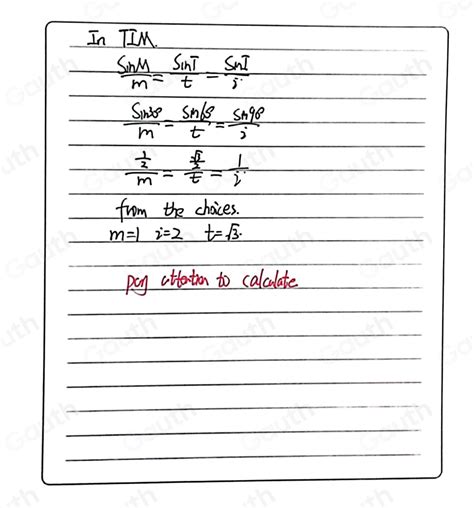 In TIM.
SinM/m = SinT/t = SinI/i
Sin30°/m = Sin60°/t = Sin90°/i
1/2/m = √3/2/t = 1/i
from the choices.
m=1 i=2 t=√3.
pay attention to calculate